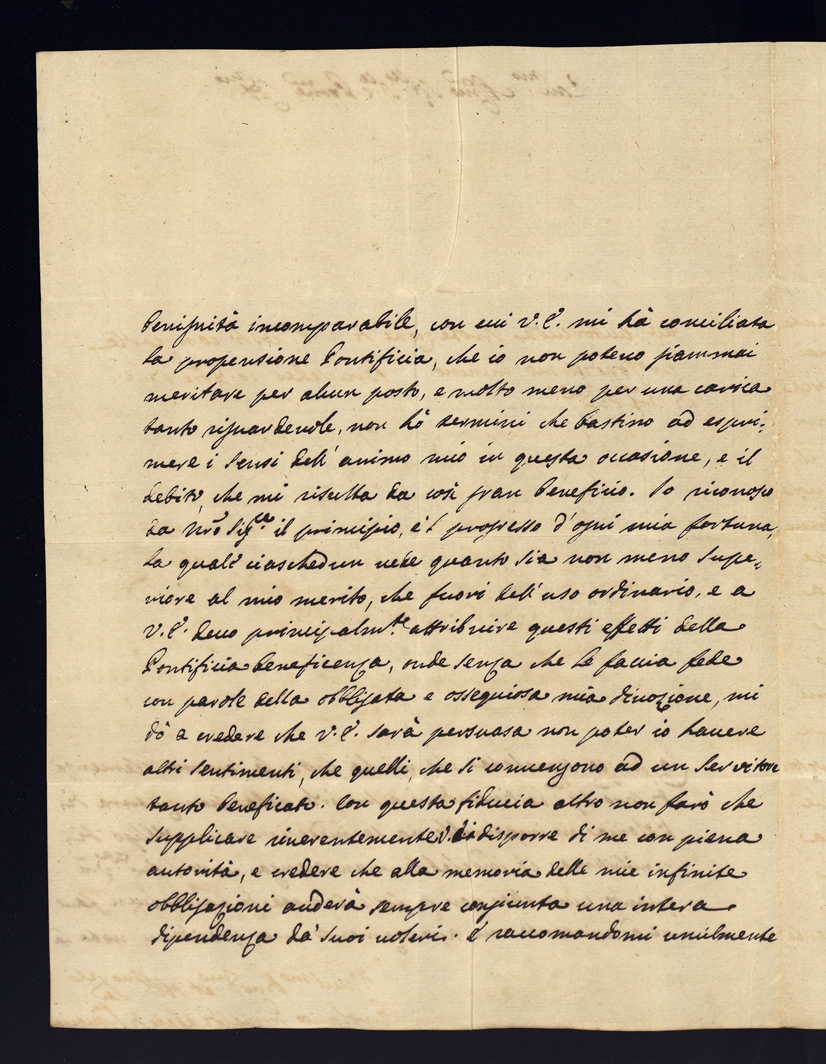 benignità incomparabile, con cui V.E. mi hà conciliata
la propensione Pontificia, che io non potevo giammai
meritare per alcun posto, e molto meno per una carica
tanto riguardevole, non hò termini che bastino ad espri-
mere i sensi dell'animo mio in questa occasione, e il
debito, che mi risulta da così gran beneficio. Io riconosco
da Nrõ Sig.re il principio, e'l progresso d'ogni mia fortuna,
la qual'è ciaschedun vede quanto sia non meno supe-
riore al mio merito, che fuori dell'uso ordinario, e a
V.E. devo principalm.te attribuire questi effetti della
Pontificia beneficenza, onde senza che Le faccia fede
con parole della obbligata e ossequiosa mia divozione, mi
dò a credere che V.E. sarà persuasa non poter io havere
altri sentimenti, che quelli, che si convengono ad un Servitore
tanto beneficato. Con questa fiducia altro non farò che
supplicare riverentemente V.E. disporre di me con piena
autorità, e credere che alla memoria delle mie infinite
obbligazioni anderà sempre congiunta una intera
dipendenza da' suoi voleri. E raccomandomi umilmente